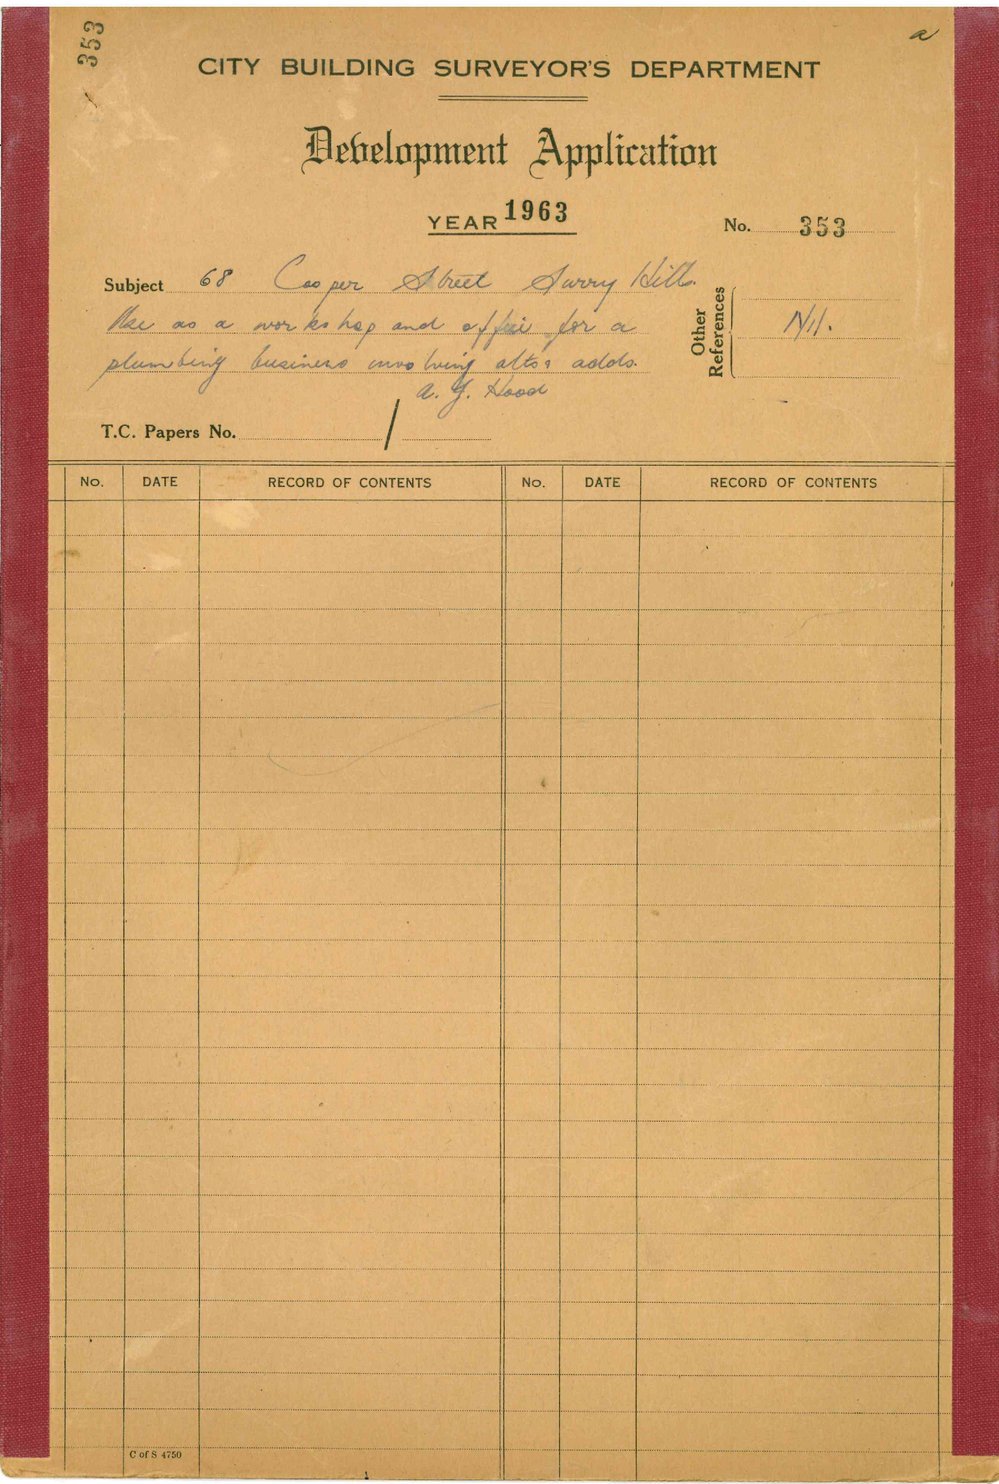 353
a
CITY BUILDING SURVEYOR'S DEPARTMENT
Development Application
YEAR 1963
No. 353
Subject 68 Cooper Street Surry Hills.
Use as a workshop and office for a
plumbing business involving alts & adds.
A. G. Hood
Other References
Nil.
T.C. Papers No. /
No. DATE RECORD OF CONTENTS No. DATE RECORD OF CONTENTS
C of S 4750